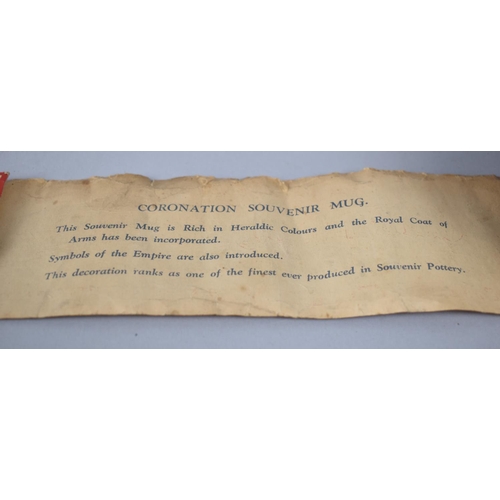 CORONATION SOUVENIR MUG.
This Souvenir Mug is Rich in Heraldic Colours and the Royal Coat of
Arms has been incorporated.
Symbols of the Empire are also introduced.
This decoration ranks as one of the finest ever produced in Souvenir Pottery.